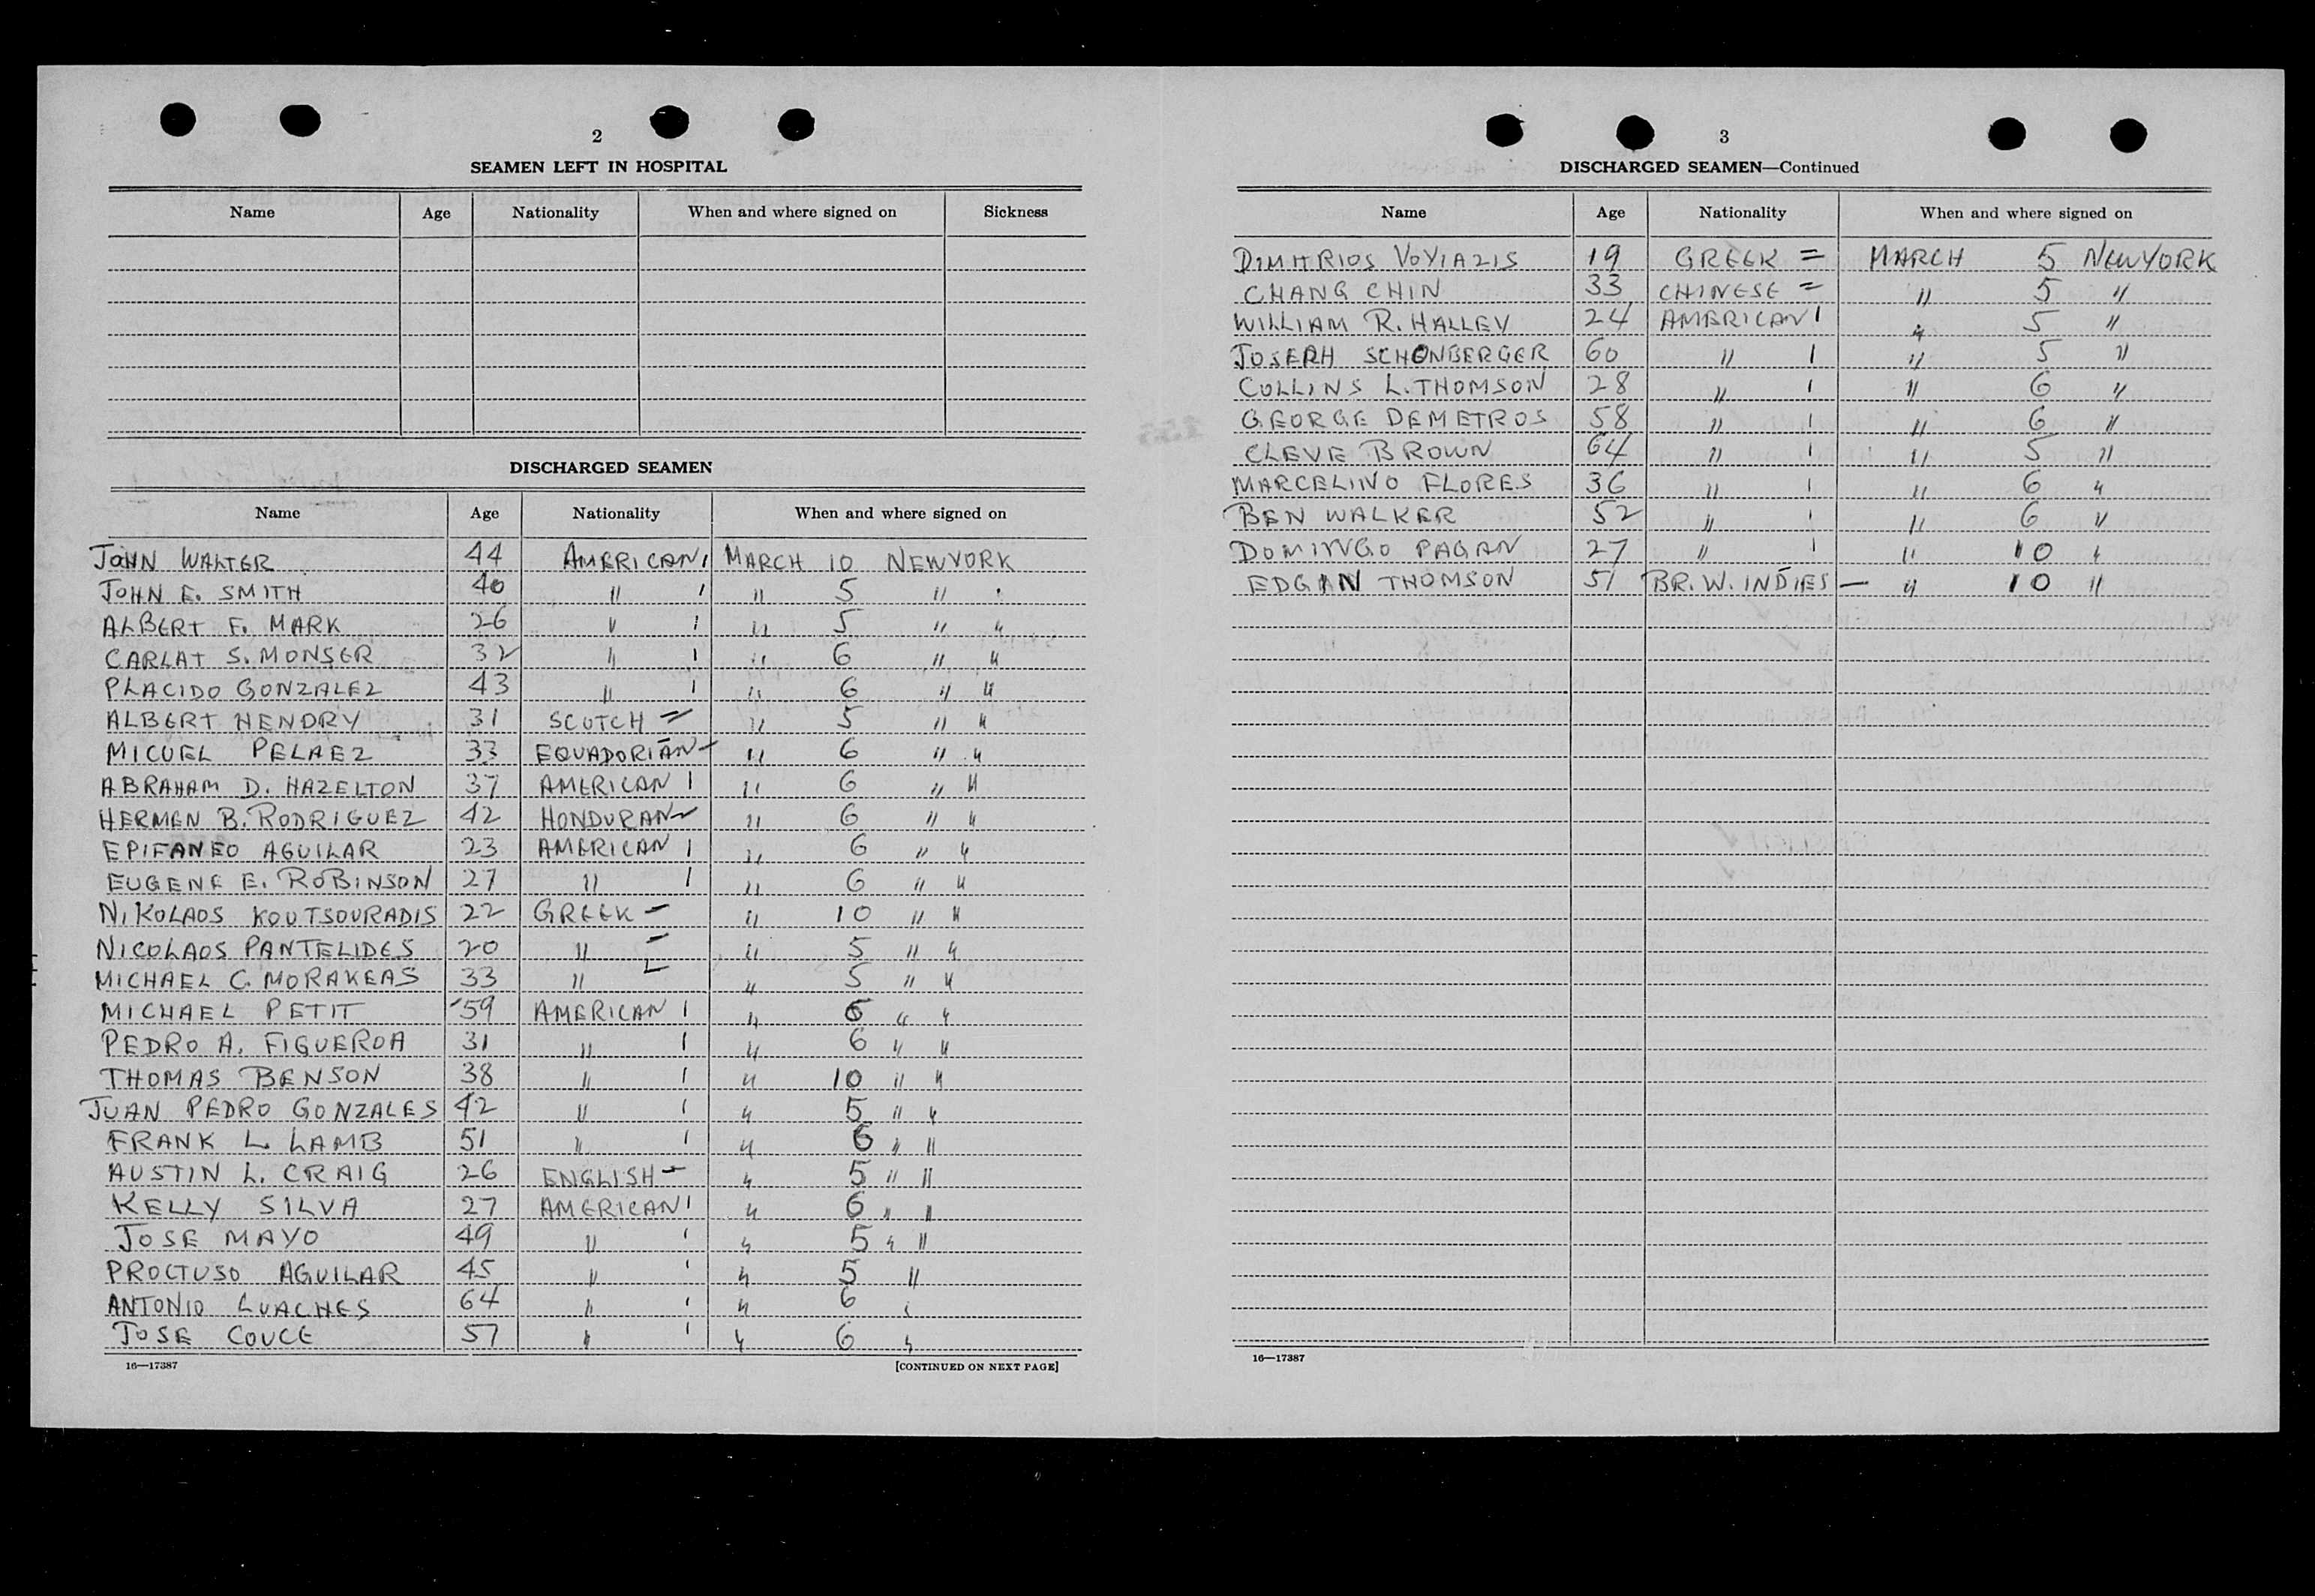 2
SEAMEN LEFT IN HOSPITAL
Name Age Nationality When and where signed on Sickness
DISCHARGED SEAMEN
Name Age Nationality When and where signed on
JOHN WALTER 44 AMERICAN MARCH 10 NEW YORK
JOHN E. SMITH 40 " " 5 "
ALBERT F. MARK 26 " " 5 " "
CARLAT S. MONSER 32 " " 6 " "
PLACIDO GONZALEZ 43 " " 6 " "
ALBERT HENDRY 31 SCOTCH " 5 " "
MICUEL PELAEZ 33 EQUADORIAN " 6 " "
ABRAHAM D. HAZELTON 37 AMERICAN " 6 " "
HERMEN B. RODRIGUEZ 42 HONDURAN " 6 " "
EPIFANEO AGUILAR 23 AMERICAN " 6 " "
EUGENE E. ROBINSON 27 " " 6 " "
NIKOLAOS KOUTSOURADIS 22 GREEK " 10 " "
NICOLAOS PANTELIDES 20 " " 5 " "
MICHAEL C. MORAKEAS 33 " " 5 " "
MICHAEL PETIT 59 AMERICAN " 6 " "
PEDRO A. FIGUEROA 31 " " 6 " "
THOMAS BENSON 38 " " 10 " "
JUAN PEDRO GONZALES 42 " " 5 " "
FRANK L. LAMB 51 " " 6 " "
AUSTIN L. CRAIG 26 ENGLISH " 5 " "
KELLY SILVA 27 AMERICAN " 6 " "
JOSE MAYO 49 " " 5 " "
PROCTUSO AGUILAR 45 " " 5 "
ANTONIO LUACHES 64 " " 6 "
JOSE COUCE 57 " " 6 "
16—17387 [CONTINUED ON NEXT PAGE]
3
DISCHARGED SEAMEN—Continued
Name Age Nationality When and where signed on
DIMITRIOS VOYIAZIS 19 GREEK MARCH 5 NEW YORK
CHANG CHIN 33 CHINESE " 5 "
WILLIAM R. HALLEY 24 AMERICAN " 5 "
JOSEPH SCHONBERGER 60 " " 5 "
COLLINS L. THOMSON 28 " " 6 "
GEORGE DEMETROS 58 " " 6 "
CLEVE BROWN 64 " " 5 "
MARCELINO FLORES 36 " " 6 "
BEN WALKER 52 " " 6 "
DOMINGO PAGAN 27 " " 10 "
EDGAN THOMSON 51 BR. W. INDIES " 10 "
16—17387